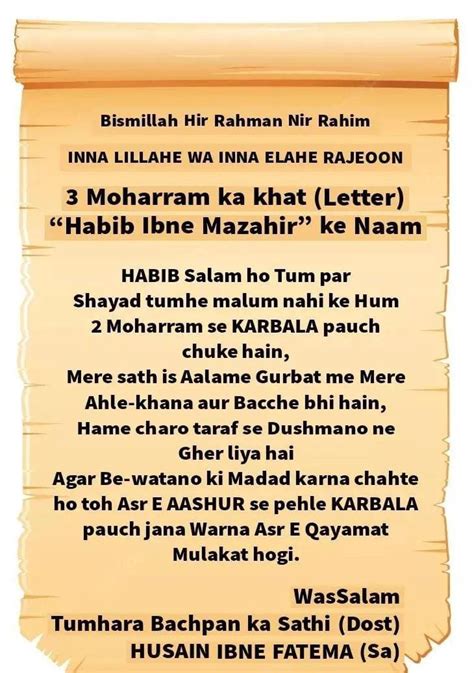 Bismillah Hir Rahman Nir Rahim
INNA LILLAHE WA INNA ELAHE RAJEOON
3 Moharram ka khat (Letter)
“Habib Ibne Mazahir” ke Naam
HABIB Salam ho Tum par
Shayad tumhe malum nahi ke Hum
2 Moharram se KARBALA pauch
chuke hain,
Mere sath is Aalame Gurbat me Mere
Ahle-khana aur Bacche bhi hain,
Hame charo taraf se Dushmano ne
Gher liya hai
Agar Be-watano ki Madad karna chahte
ho toh Asr E AASHUR se pehle KARBALA
pauch jana Warna Asr E Qayamat
Mulakat hogi.
WasSalam
Tumhara Bachpan ka Sathi (Dost)
HUSAIN IBNE FATEMA (Sa)